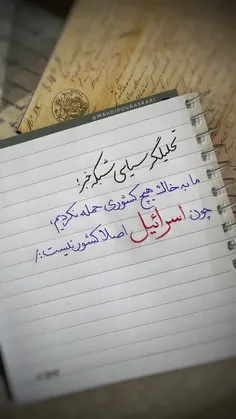 @MAHDIPOURASKARI
تحلیلگر سیاسی شبکه خبر؛
ما به خاک هیچ کشوری حمله نکردیم،
چون اسرائیل اصلا کشور نیست:/